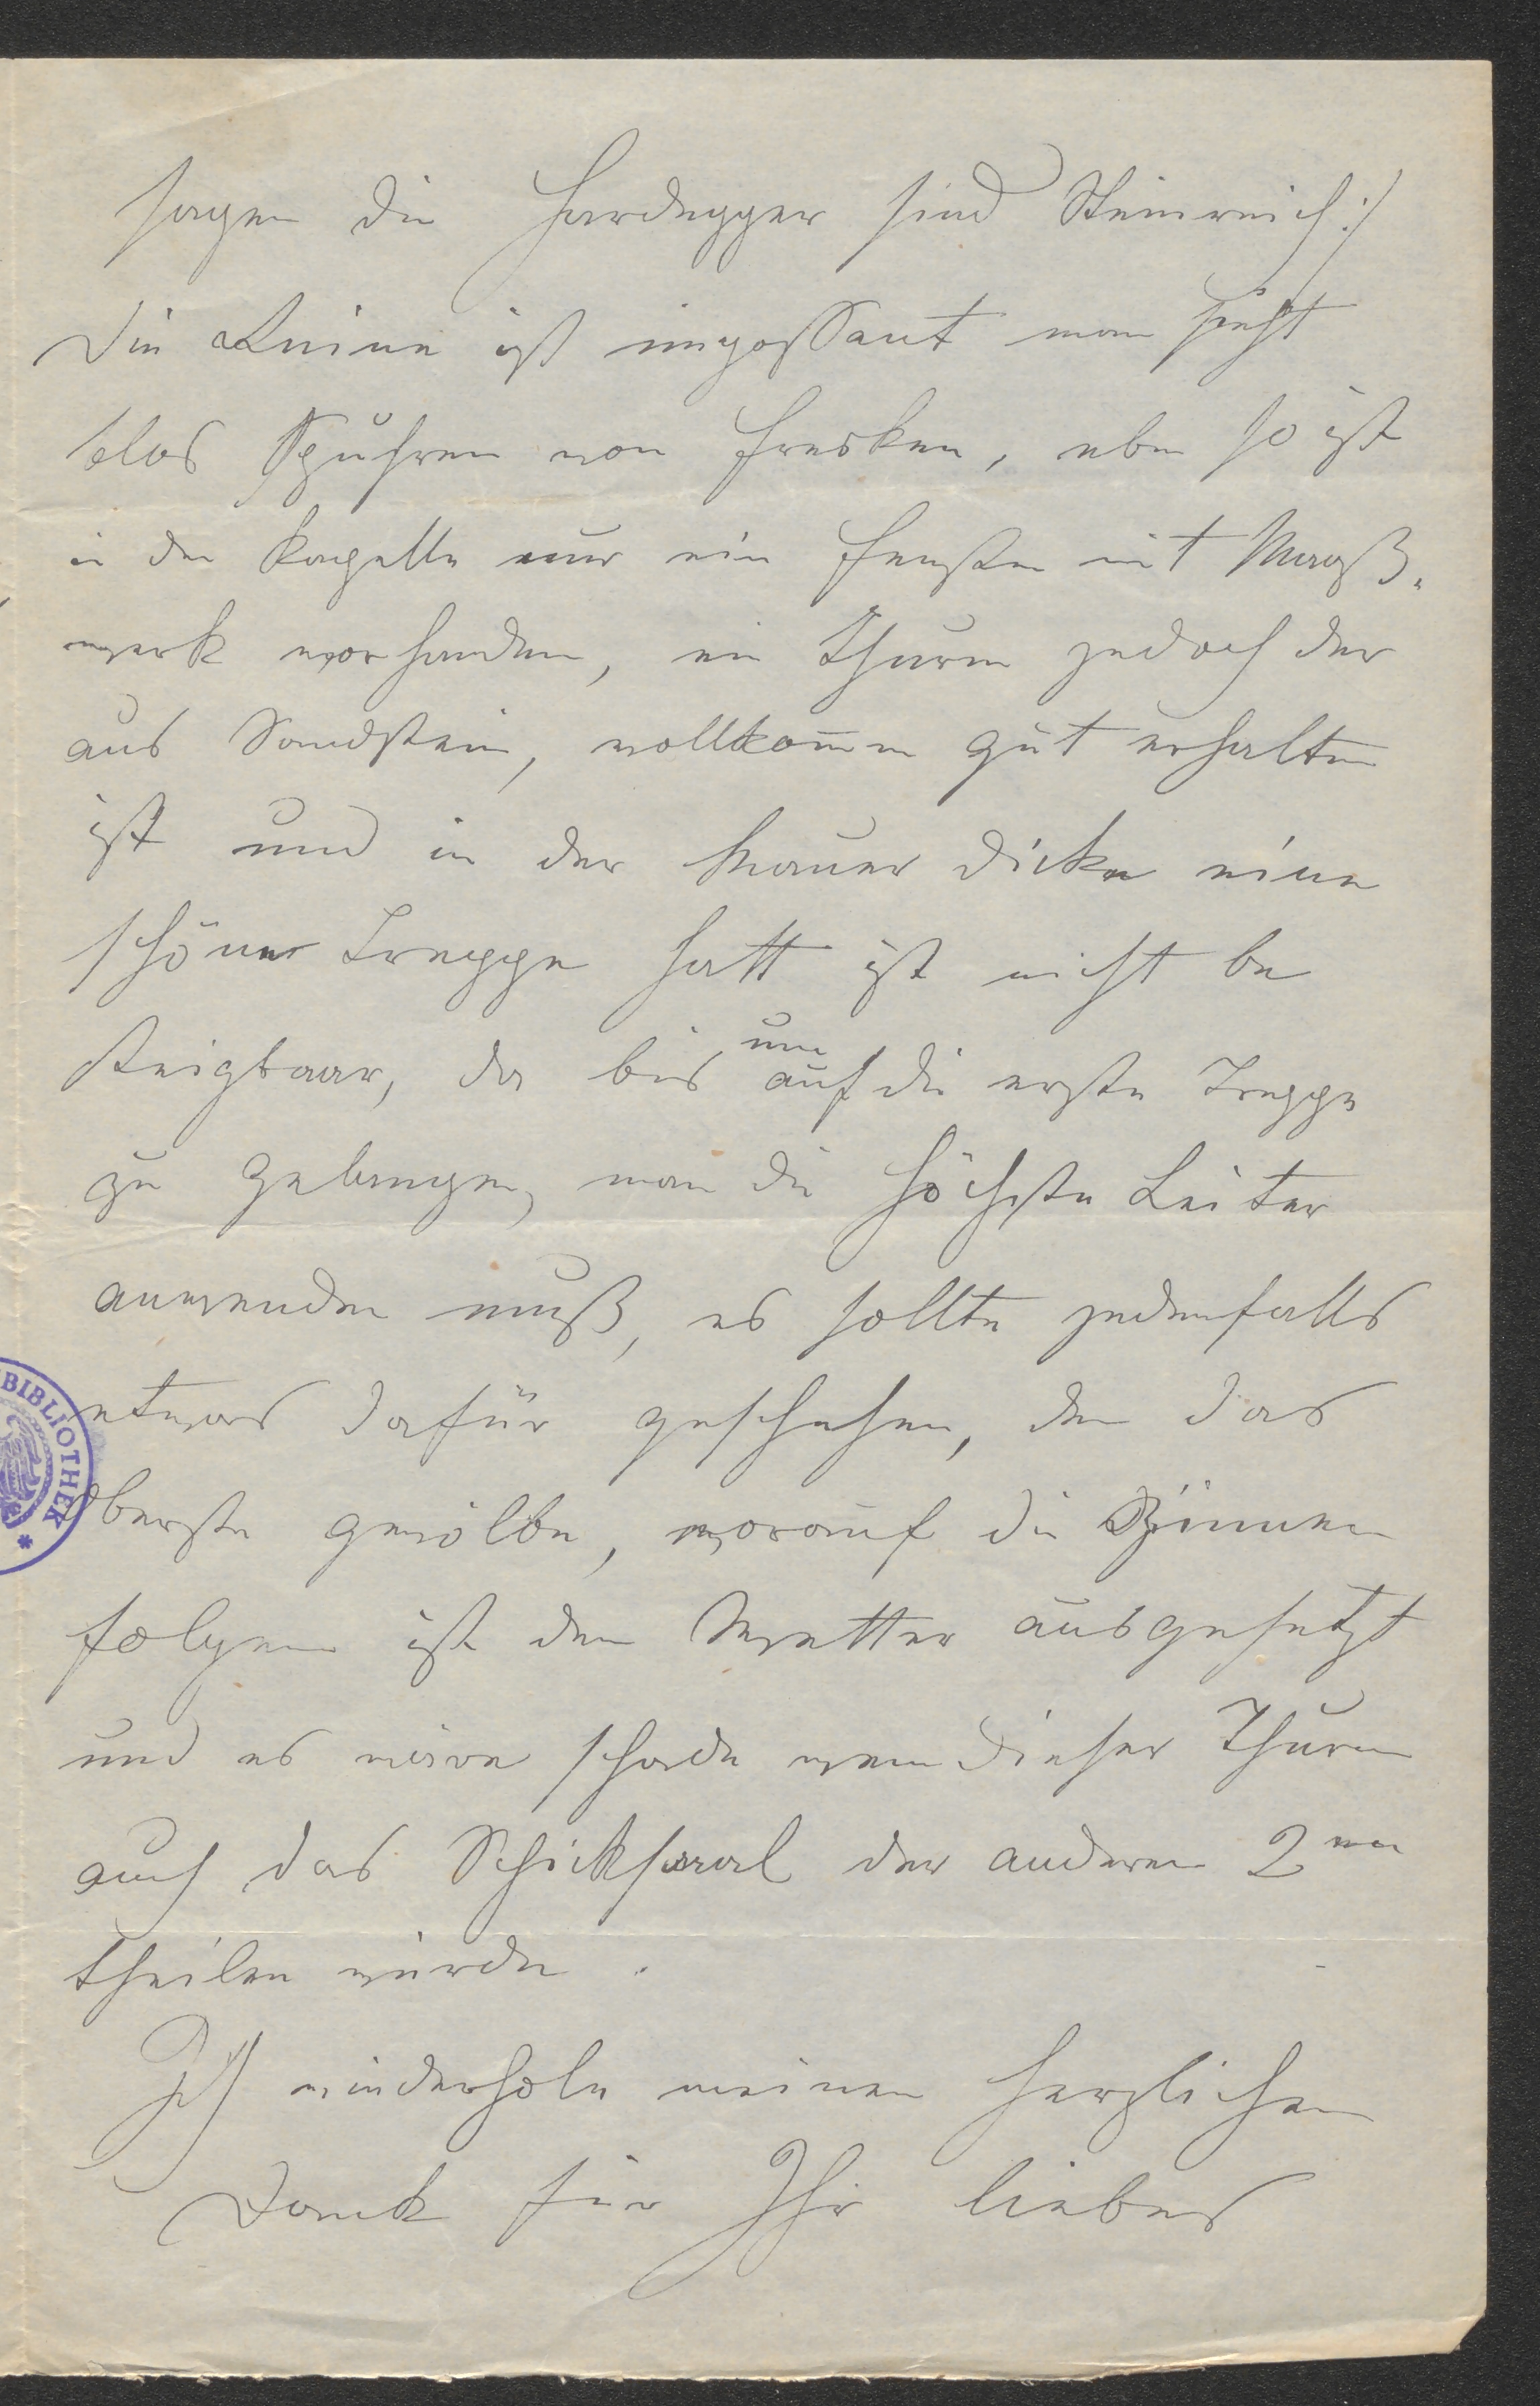 sagen die Hardegger sind Steinreich :/
Die Ruine ist impossant man sieht
blos Spuhren von Fresken, eben so ist
in der Kapelle nur ein Fenster mit Maaß-
werk vorhanden, ein Thurm jedoch der
aus Sandstein, vollkom̄en gut erhalten
ist und in der Mauer dicke eine
schöne Treppe hatt ist nicht be
steigbaar, da bis um auf die erste Treppe
zu gelangen, man die höchste Leiter
anwenden muß, es sollte jedenfalls
etwas dafür geschehen, den das
oberste gewölbe, worauf die Zinnen
folgen ist dem Wetter ausgesetzt
und es wäre schade wenn dieser Thurm
auch das Schicksaal der anderen 2en
theilen würde.
Ich wiederhole meinen herzlichen
Dank für Ihr liebes
BIBLIOTHEK *